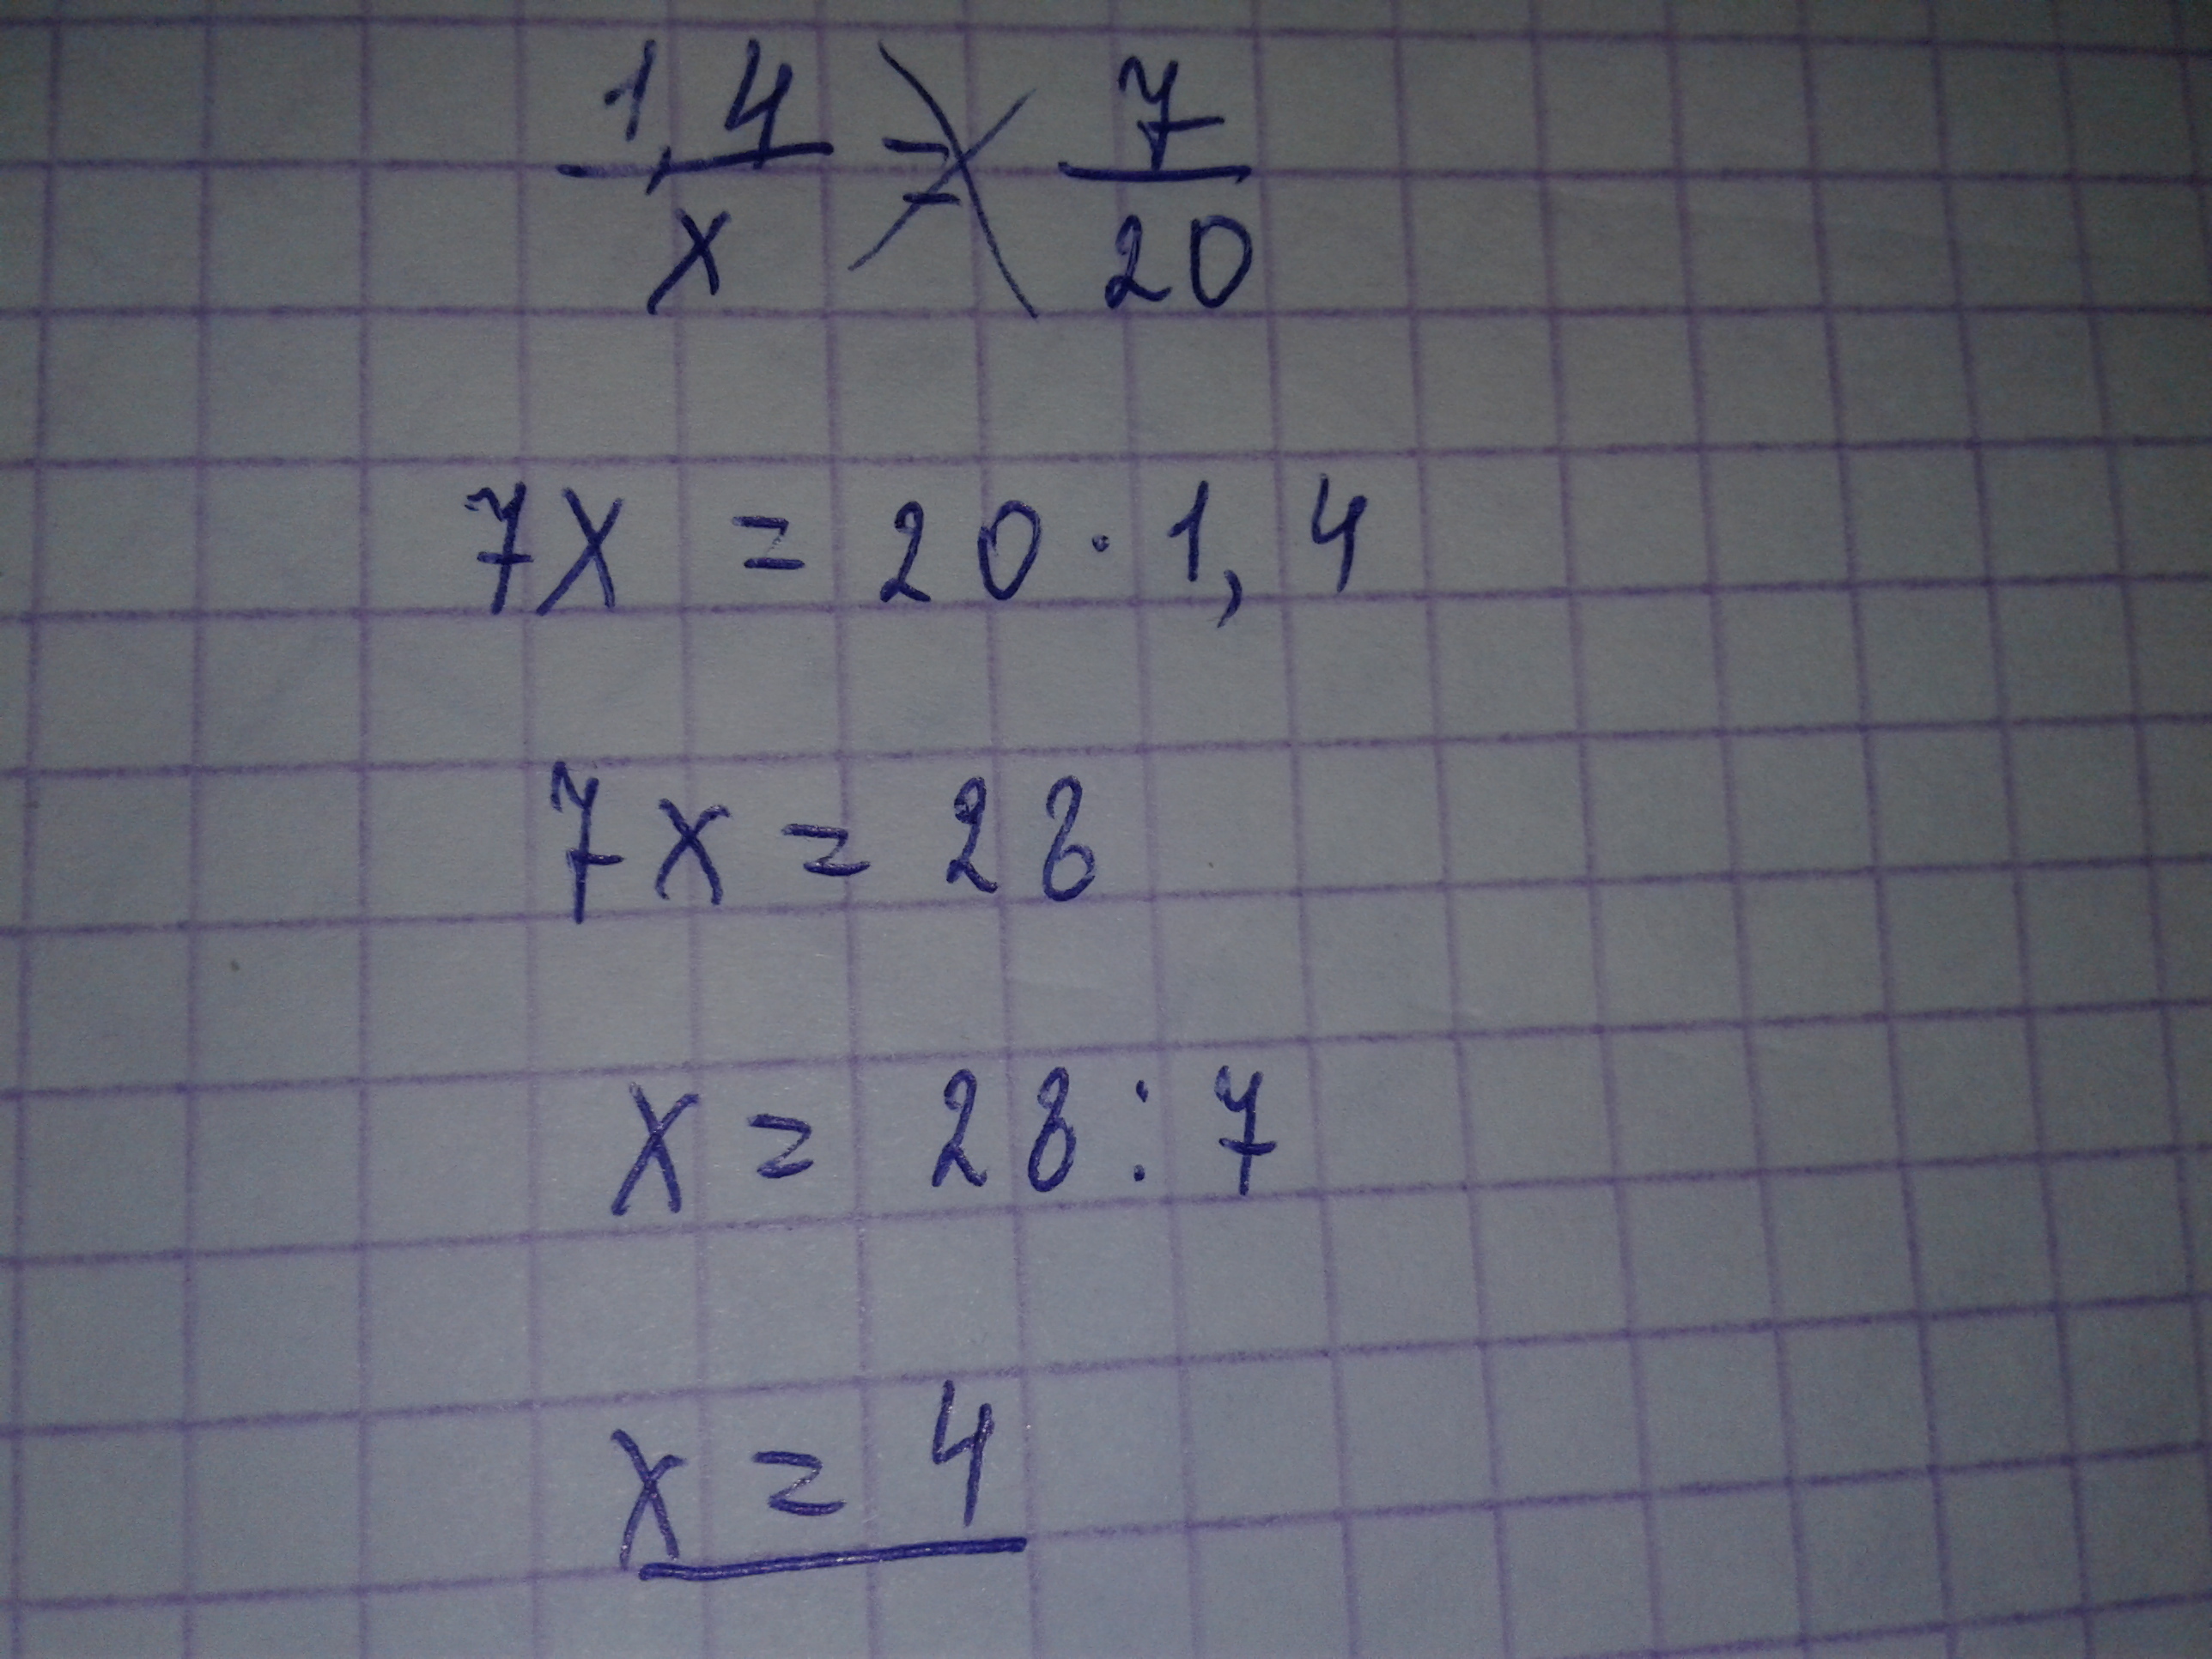 1,4/x = 7/20
7x = 20 · 1,4
7x = 28
x = 28 : 7
x = 4